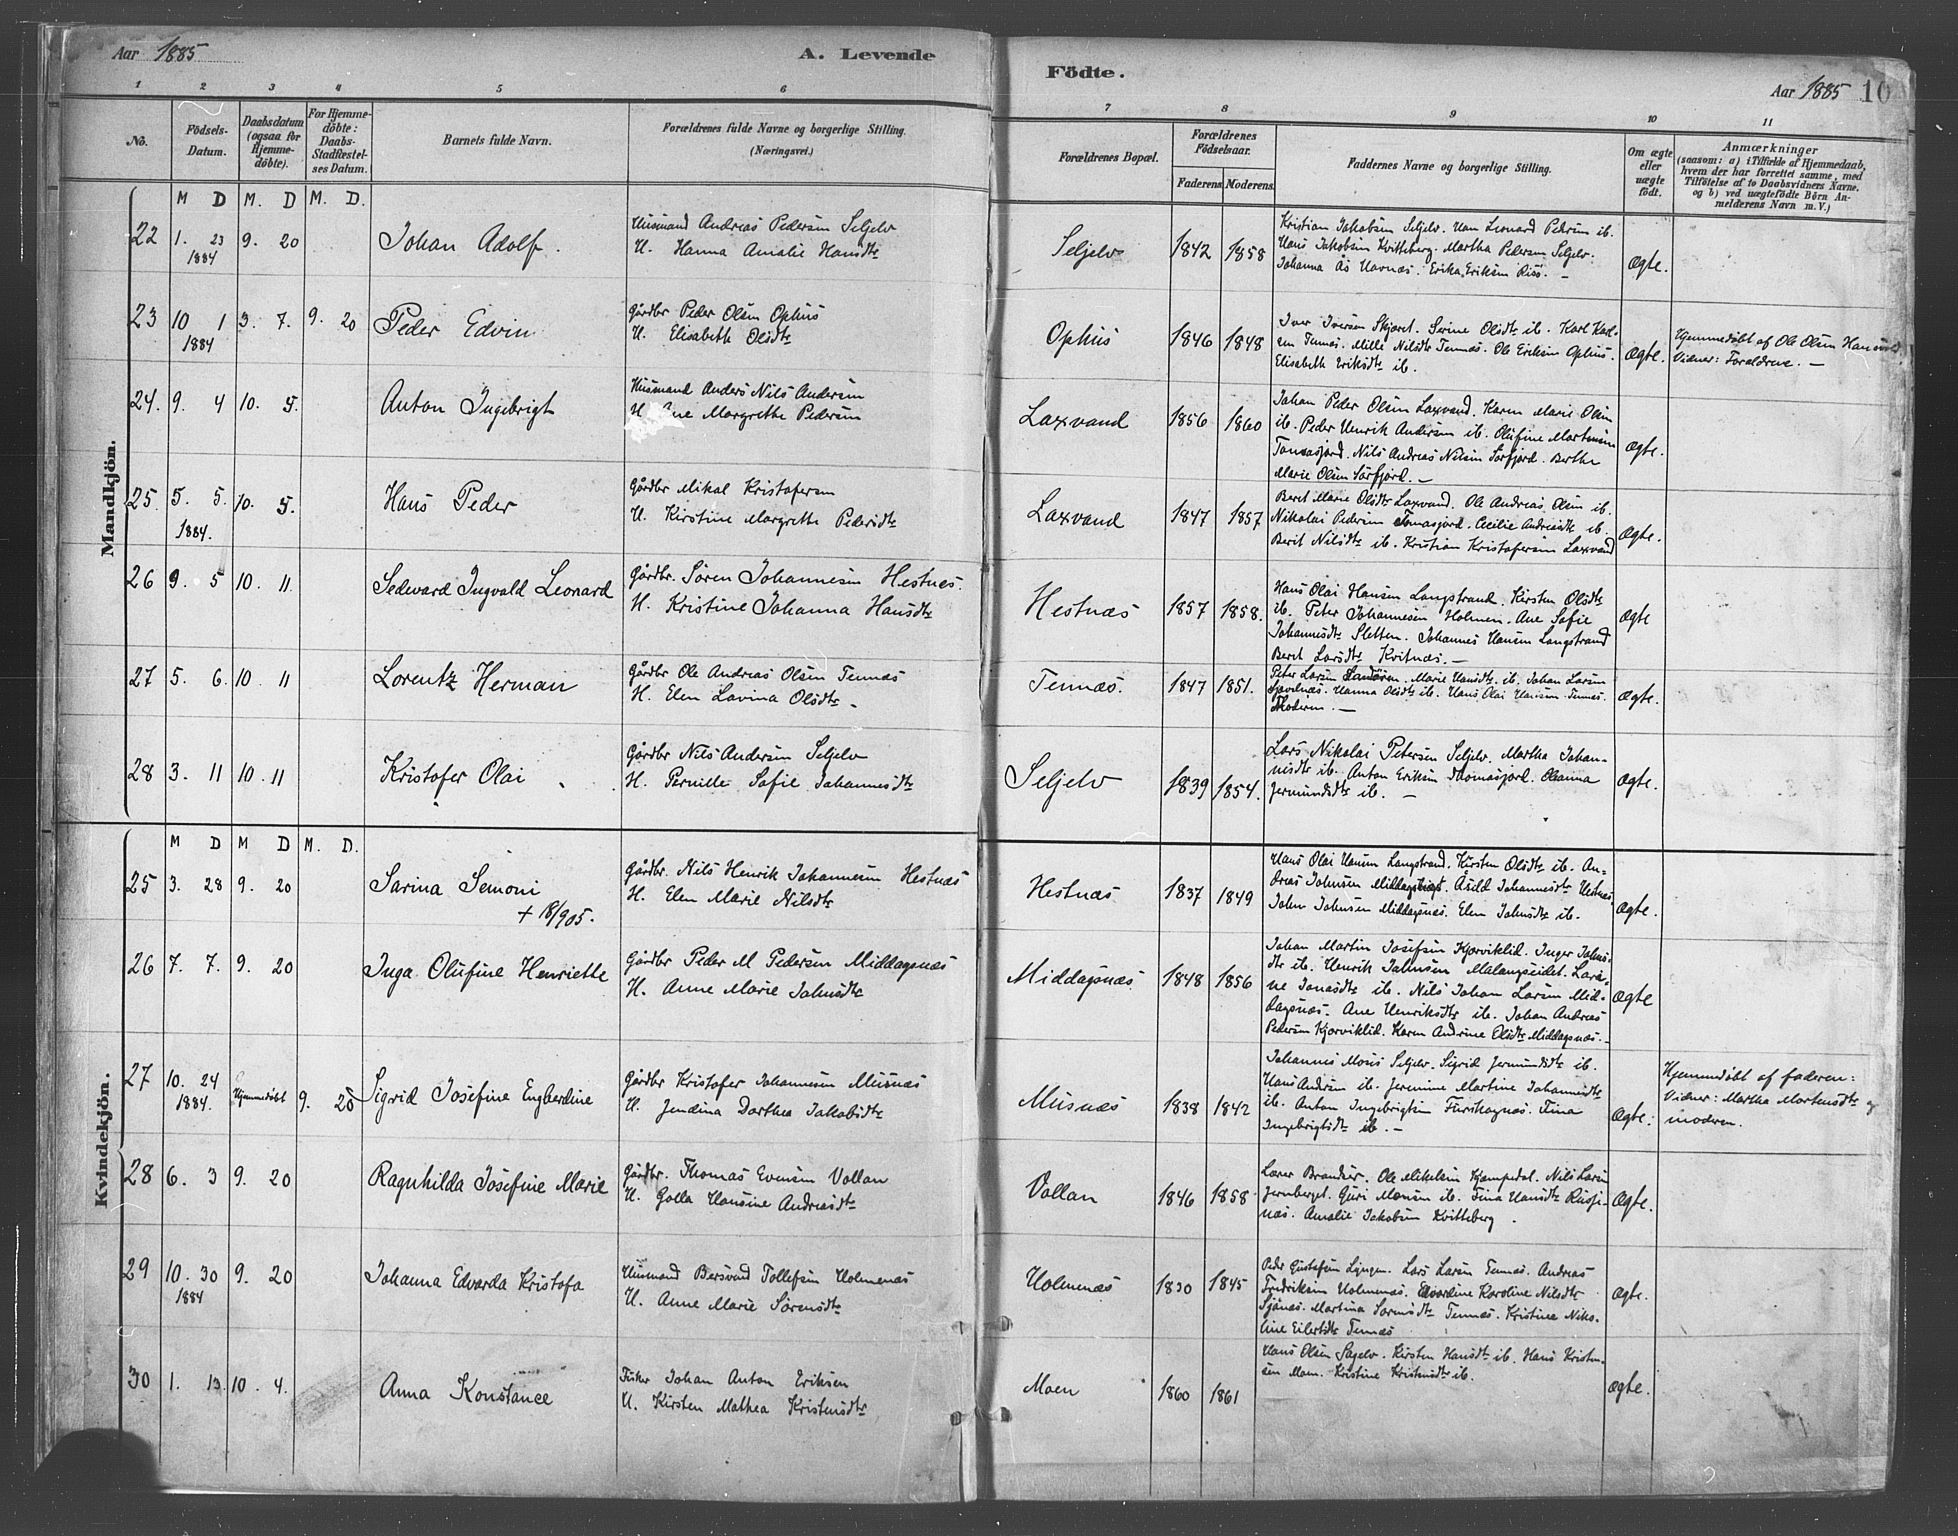 Aar 1885
A. Levende
1 2 3 4 5 6
No.
Födsels-
Datum.
Daabsdatum
(ogsaa for
Hjemme-
döbte).
For Hjemme-
döbte:
Daabs-
Stadfæstel-
ses Datum.
Barnets fulde Navn.
Forældrenes fulde Navne og borgerlige Stilling.
(Næringsvei.)
Mandkjön.
M D M. D M. D.
22 1. 23 9. 20 Johan Adolf. Husmand Andreas Pedersen Seljelv
1884 H. Hanna Amalie Hansdtr
23 10 1 3. 7. 9. 20 Peder Edvin Gårdbr Peder Olsen Ophus
1884 H. Elisabeth Olsdtr
24. 9. 4 10. 5. Anton Ingebrigt Husmand Anders Nils Andersen
H. Ane Margrethe Pedersen
25 5. 5. 10. 5. Hans Peder Gårdbr Mikal Kristofersen
1884. H. Kirstine Margrethe Pedersdtr
26 9. 5 10. 11 Sedevard Ingvald Leonard Gårdbr. Sören Johannesen Hestnæs.
H. Kristine Johanna Hansdtr
27 5. 6. 10. 11 Lorentz Herman Gårdbr Ole Andreas Olsen Tennæs
H. Elen Lovina Olsdtr
28 3. 11 10. 11 Kristofer Olai Gårdbr Nils Andersen Seljelv
H. Pernille Sofie Johannesdtr
Kvindekjön.
M D M D M. D.
25 3. 28 9. 20 Sarina Semoni Gårdbr. Nils Henrik Johannesen Hestnæs
+ 18/905. H. Elen Marie Nilsdtr
26 7. 7. 9. 20 Inga Olufine Henriette Gårdbr Peder M Pedersen Middagsnæs
H. Anne Marie Johnsdtr
27 10. 24 Hjemmedöbt 9. 20 Sigrid Josefine Engberdine Gårdbr Kristofer Johannesen Musnæs
1884. H. Jendina Dorthea Jakobsdtr
28 6. 3 9. 20 Ragnhilda Josefine Marie Gårdbr. Thomas Evensen Vollan
H. Golla Hansine Andreasdtr
29 10. 30 9. 20 Johanna Edvarda Kristofa Husmand Bersvend Tollefsen Holmenæs
1884 H. Anne Marie Sørensdtr
30 1. 13 10. 4. Anna Konstance Fisker Johan Anton Eriksen
H. Kirsten Mathea Kristensdtr
Födte.
Aar 1885 10
7 8 9 10 11
Forældrenes Bopæl.
Forældrenes
Födselsaar.
Faderens. Moderens.
Faddernes Navne og borgerlige Stilling.
Om ægte
eller
uægte
födt.
Anmærkninger
(saasom: a) i Tilfælde af Hjemmedaab,
hvem der har forrettet samme, med
Tilföielse af to Daabsvidners Navne.
og b) ved uægtefödte Börn An-
melderens Navn m. V.)
Kristian Jakobsen Seljelv. Leonard Pedersen ib.
Seljelv 1842 1858 Hans Jakobsen Kvitteberg. Martha Pedersen Seljelv. Ægte.
Johanna Ås Havnæs. Erika Eriksen Riss. —
Iver Iversen Skjaret. Serine Olsdtr ib. Karl Karl-
Ophus 1846 1848 sen Tennæs. Mille Nilsdtr Tennæs. Ole Eriksen Ophus. Ægte. Hjemmedöbt af Ole Olsen
Elisabeth Eriksdtr ib. Vidner: Forældrene. —
Johan Peder Olsen Laxvand. Karen Marie Olsen
Laxvand 1856 1860 ib. Peder Henrik Andersen ib. Olufine Martensen Ægte.
Tomasjord. Nils Andreas Nilsen Sörfjord. Berthe
Marie Olsen Sörfjord. —
Berit Marie Olsdtr Laxvand. Ole Andreas Olsen ib.
Laxvand 1847 1857 Nikolai Pedersen Tomasjord. Cecilie Andreasdtr ib. Ægte.
Berit Nilsdtr ib. Kristian Kristofersen Laxvand
Hans Olai Hansen Langstrand. Kirsten Olsdtr
Hestnæs 1857 1858. ib. Peter Johannesen Holmen. Ane Sofie Ægte
Johannesdtr Sletten. Johannes Hansen Langstrand
Berit Larsdtr Kvitnæs. —
Peter Larsen Sandören. Marie Hansdtr ib. Johan Larsen
Tennæs. 1847 1851. Hanna Olsdtr ib. Hans Olai Hansen Tennæs. Ægte.
Moderen. —
Lars Nikolai Petersen Seljelv. Martha Johan-
Seljelv 1839 1854. nesdtr ib. Anton Eriksen Thomasjord. Oleanna Ægte.
Jermundsdtr ib. —
Hans Olai Hansen Langstrand. Kirsten Olsdtr ib. An-
Hestnæs 1837 1849 dreas Johnsen Johannesdtr Hestnæs
John Johnsen Middagsnæs. Elen Johnsdtr ib. Ægte.
Johan Martin Josefsen Kjorviklid. Inger Johns-
Middagsnæs 1848 1856 dtr ib. Henrik Johnsen Malangseidet. Lovi-
ne Jonasdtr ib. Nils Johan Larsen Mid- Ægte
dagsnæs. Ane Henriksdtr ib. Johan Andreas
Pedersen Kjorviklid. Karen Andrine Olsdtr Middagsnæs. —
Johannes Moses Seljelv. Sigrid Jermundsdtr ib. Hjemmedöbt af faderen:
Musnæs 1838 1842 Hans Andersen ib. Jermine Martine Johannesdtr Vidner: Martha Mortensdtr
ib. Anton Ingebrigtsen Tina Ægte. moderen.
Ingebrigtsdtr ib. —
Lærer Brandser. Ole Mikelsen Kjempedal. Nils Larsen
Vollan 1846 1858 Jernberget. Guri Monsen ib. Tina Hansdtr Russe- Ægte.
næs. Amalie Jakobsen Kvitteberg.
Peder Gustafsen Lyngen. Lars Larsen Tennæs. Andreas
Holmenæs 1830 1845 Fredriksen Holmenæs. Karoline Nilsdtr Ægte.
Sjönæs. Martina Sörensdtr Tennæs. Kristine Niks.
Ane Eilertsdtr Tennæs
Hans Olsen Sagelv. Kirsten Hansdtr ib. Hans Kristen-
Moen 1860 1861 sen Moen. Kristine Kristensdtr ib. Ægte.